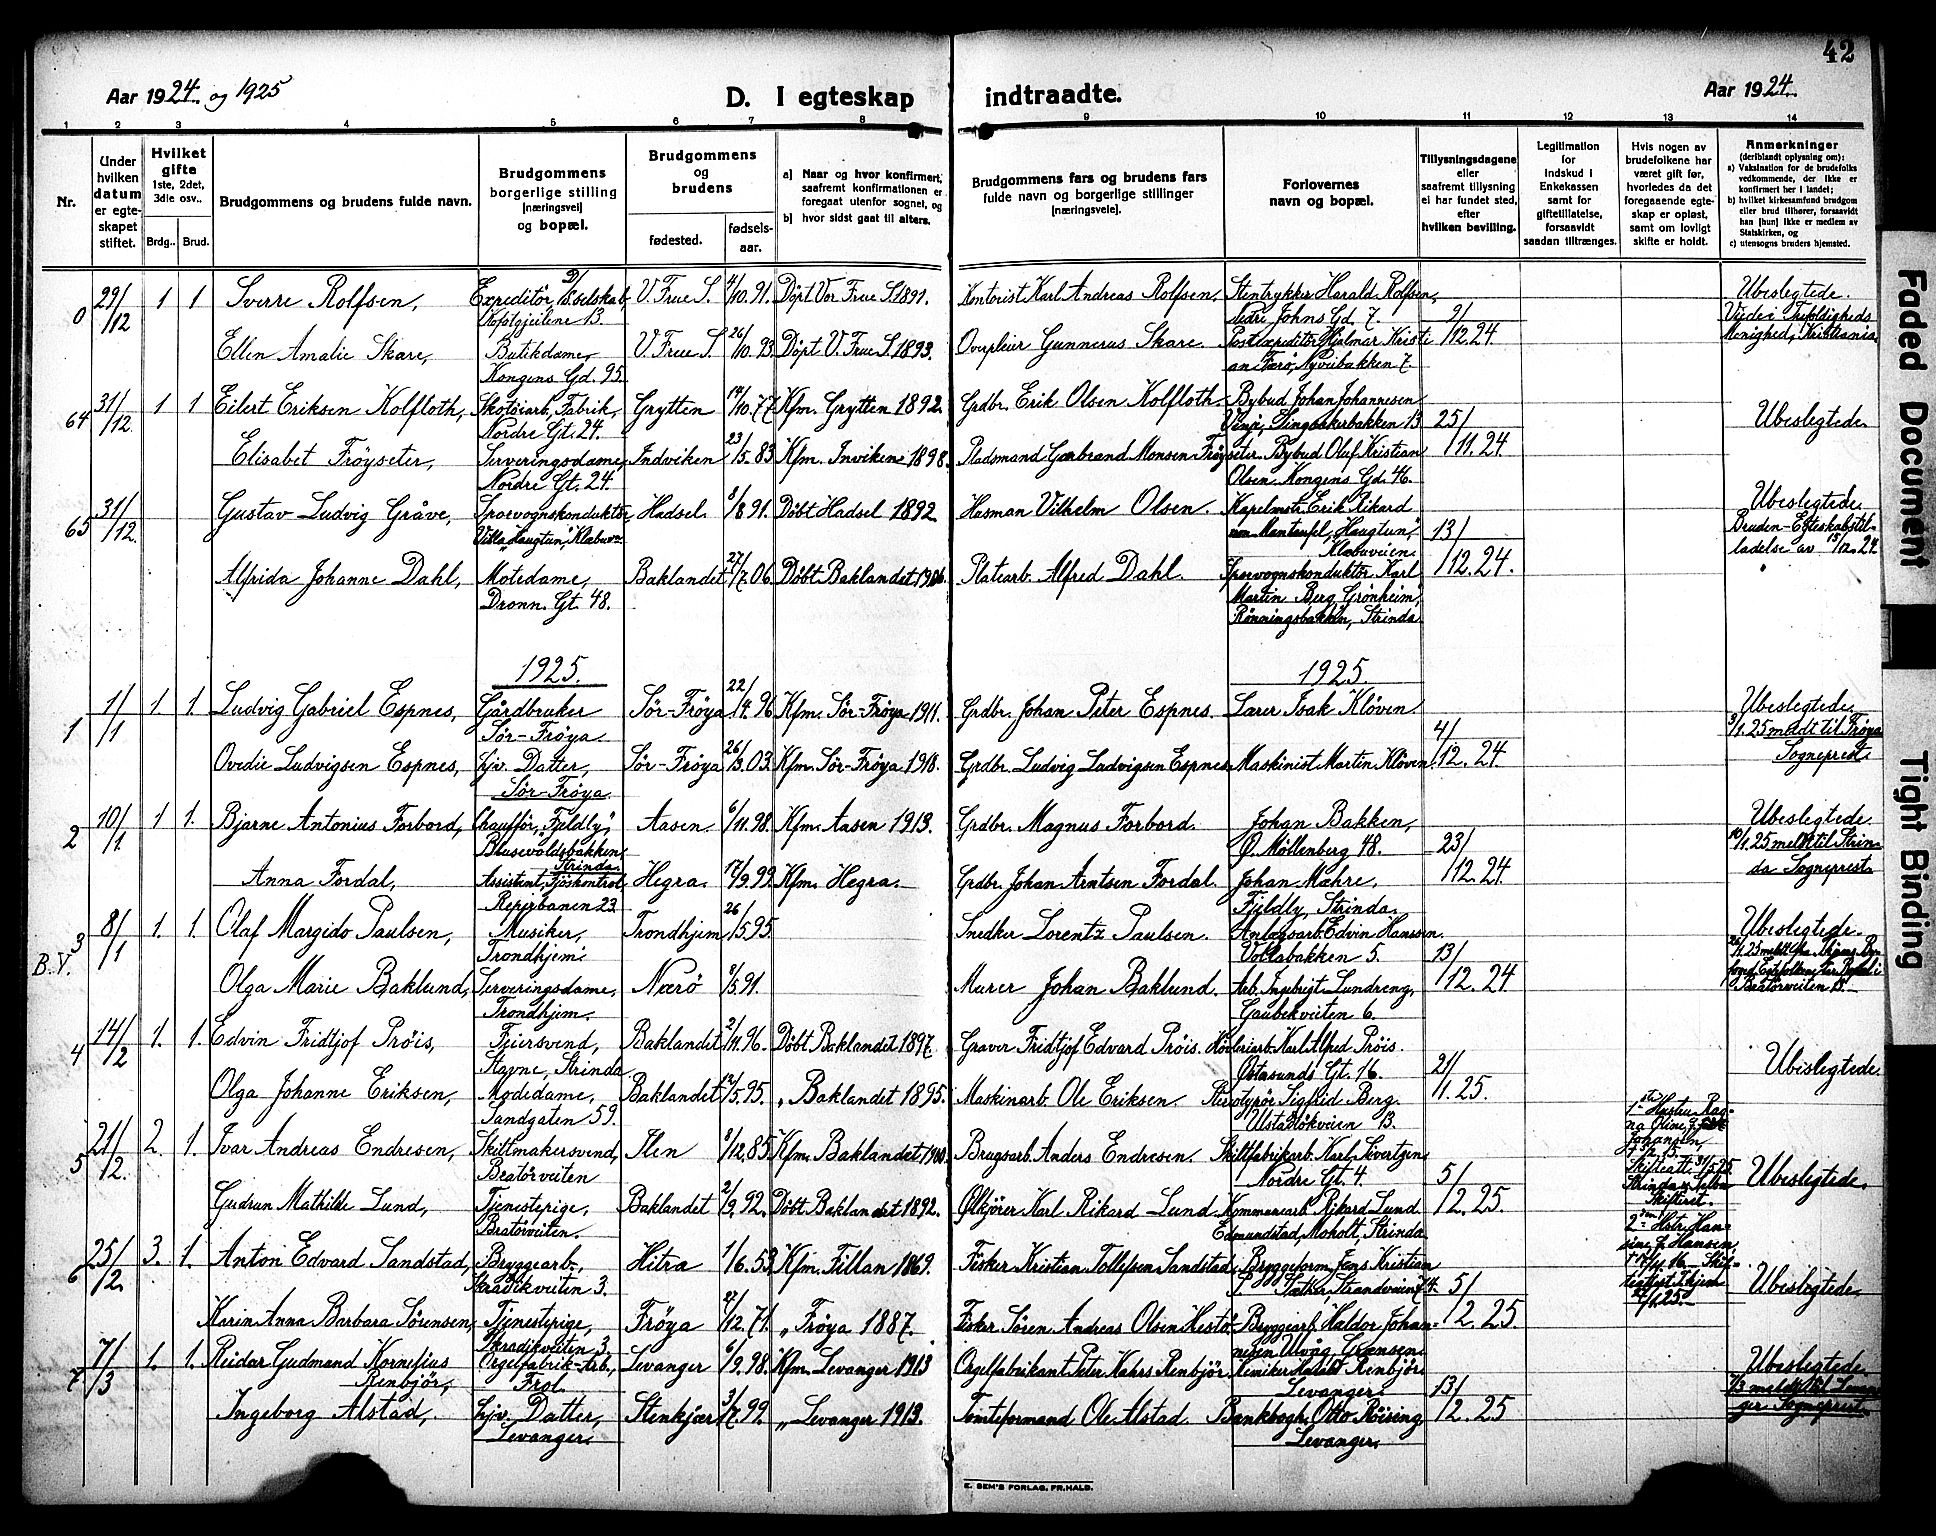 42
Aar 1924. og 1925
D. I egteskap indtraadte.
Aar 1924.
1 2 3 4 5 6 7 8 9 10 11 12 13 14
Nr.
Under hvilken datum er egte-skapet stiftet.
Hvilket gifte 1ste, 2det, 3dle osv..
Brdg.. Brud.
Brudgommens og brudens fulde navn.
Brudgommens borgerlige stilling (næringsvei) og bopæl.
Brudgommens og brudens
fødested. fødsels-aar.
a) Naar og hvor konfirmert, saafremt konfirmationen er foregaat utenfor sognet, og
b) hvor sidst gaat til alters.
Brudgommens fars og brudens fars fulde navn og borgerlige stillinger (næringsveie).
Forlovernes navn og bopæl.
Tillysningsdagene eller saafremt tillysning ei har fundet sted, efter hvilken bevilling.
Legitimation for Indskud i Enkekassen samt for giftetillatelse, forsaavidt saadan tiltrænges.
Hvis nogen av brudefolkene har været gift før, hvorledes da det foregaaende egte-skap er opløst, samt om lovligt skifte er holdt.
Anmerkninger (deriblandt oplysning om):
a) Vaksination for de brudefolks vedkommende, der ikke er konfirmert her i landet;
b) hvilket kirkesamfund brudgom eller brud tilhører, forsaavidt han (hun) ikke er medlem av Statskirken, og
c) utensogns bruders hjemsted.
0 29/12 1 1 Sverre Rolfsen, Expeditør, D/S.selskab, V. Frue S. 4/10.91. Døpt Vor Frue S. 1891. Kontorist Karl Andreas Rolfsen. Stentrykker Harald Rolfsen, Ubeslegtede.
13. Nedre Johns Gd. 7. 9/12.24 Viede i Trefoldigheds Menighed, Kristiania.
Ellen Amalie Skare, Butikdame, V. Frue S. 26/10.93. Døpt V. Frue S. 1893. Gunnerus Skare. Postexpeditør Hjalmar Kristi
Kongens Gd. 95. an Færø, 7.
64 31/12. 1 1 Eilert Eriksen Kolfloth, Skotøiarb. Fabrik, Grytten 14/10.77. Kfm. Grytten 1892. Grdbr. Erik Olsen Kolfloth. Bybud Johan Johannesen Ubeslegtede
Nordre Gt. 24. Vinje, Singsakerbakken 13 25/11.24
Elisabet Frøyseter, Serveringsdame, Indviken 23/5.83 Kfm. Inviken 1898. Pladsmand Gerbrand Monsen Frøyseter. Bybud Oluf Kristian
Nordre Gt. 24. Olsen Kongens Gd. 46.
65 31/12. Gustav Ludvig Gråve, Sporvognskonduktør, Hadsel. 8/8 91. Døbt Hadsel 1892 Hasman Vilhelm Olsen. Kapelmstr. Erik Rikard Ubeslegtede
Villa "Haugtun", Klæbuv. von Manteufel, "Haugtun", 13/12.24. Bruden-Egteskabstil-
Klæbuveien ladelse av 15/12.24
Alfrida Johanne Dahl, Motedame, Baklandet 27/7.06. Døbt Baklandet 1906. Platearb. Alfred Dahl. Sporvognskonduktør Karl
Dronn. Gt. 48. Martin Berg, Grønheim,
Rønningsbakken, Strinda
1925. 1925
1 1/1 1. 1. Ludvig Gabriel Espnes, Gårdbruker Sør-Frøya 22/4.96 Kfm. Sør-Frøya 1911. Grdbr. Johan Peter Espnes. Lærer Isak Kløven. Ubeslegtede.
Sør-Frøya. 4/12.24 3/1.25 meldt til Frøya
Ovedie Ludvigsen Espnes, hjv. Datter, Sør-Frøya 26/3.03. Kfm. Sør-Frøya 1918. Grdbr. Ludvig Ludvigsen Espnes Maskinist Martin Kløven. Sogneprest.
Sør-Frøya.
2 10/1. 1 1. Bjarne Antonius Forbord, Chauffør, "Fjeldly", Aasen. 6/11.98. Kfm. Aasen 1913. Grdbr. Magnus Forbord. Johan Bakken, Ubeslegtede
Blusevoldsbakken, Strinda Ø. Møllenberg 48. 23/12.24 10/1.25 meldt til Strin-
Anna Fordal, Assistent, Fjøskontrol. Hegra. 17/9.99. Kfm. Hegra. Grdbr. Johan Arntsen Fordal. Johan Mæhre, da Sogneprest.
Reperbanen 23. Fjeldly, Strinda.
B.V. 3 8/1 1. 1. Olaf Margido Paulsen, Musiker, Trondhjem 26/5.95. Snedker Lorentz Paulsen. Anlægsarb. Edvin Hansen. Ubeslegtede.
Trondhjem. Vollabakken 5. 13/12.24
Olga Marie Baklund, Serveringsdame, Nærö 8/5.91. Murer Johan Baklund. Arb. Ingebrigt Lundreng, Bratørveiten 13.
Trondhjem. Gaubekveiten 6.
4 14/2 1. 1. Edvin Fridtjof Prøis, Feiersvend, Baklandet 2/11.96. Døbt Baklandet 1897. Graver Fridtjof Edvard Prøis. Karl Alfred Prøis. Ubeslegtede
Stavne, Strinda. Østersunds Gt. 16. 21/1.25.
Olga Johanne Eriksen, Modedame, Baklandet 12/5.95. „ Baklandet 1895. Maskinarb. Ole Eriksen. Stereotypør Sigfrid Berg.
Sandgaten 59. Ulstadløkveien 13.
5 21/2. 2. 1. Ivar Andreas Endresen, Skiltmakersvend, Ilen 8/12.85. Kfm. Baklandet 1900. Brugsarb. Anders Endresen. Skiltfabrikarb. Karl Sivertsen Ubeslegtede.
Bratørveiten Nordre Gt. 4. 5/2.25.
Gudrun Mathilde Lund, Tjenestepige, Baklandet 2/9.92. Døbt Baklandet 1892. Ølkjører Karl Rikard Lund. Rikard Lund
Bratørveiten. Edmundstad, Moholt, Strinda
6 25/2. 3. 1. Anton Edvard Sandstad, Bryggearb., Hitra 1/6.53 Kfm. Fillan 1869. Fisker Kristian Tollefsen Sandstad. Bryggeform. Jens Kristian Ubeslegtede
Skradikveiten 3. Sæther, Strandveien 74. 5/2.25.
Karin Anna Barbara Sørensen, Tjenestepige, Frøya 27/12.71. „ Frøya 1887. Fisker Søren Andreas Olsen Bryggearb. Haldor Johan-
Skradikveiten 3. nesen Ulvåg,
7 7/3 1. 1. Reidar Gudmand Kornelius Orgelfabrik-Arb., Levanger 6/9.98. Kfm. Levanger 1913 Orgelfabrikant Peter Renbjør. Renbjør Ubeslegtede
Renbjør, Frol. Levanger. 13/2.25 7/3 meldt til Levan-
Ingeborg Alstad, hjv. Datter, Stenkjær 3/7.99. „ Levanger 1913. Tomteformand Ole Alstad. Bankbogh. Otto Røising ger Sogneprest.
Levanger. Levanger.
E. SEM'S FORLAG, FR.HALD.
Faded Document
Tight Binding